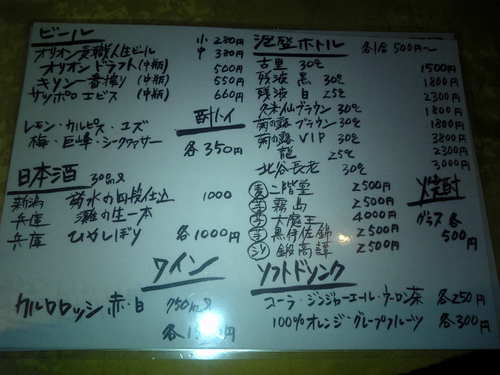 ビール
オリオン 職人生ビール 小 280円
中 380円
オリオンドラフト(中瓶) 500円
キリン一番搾り(中瓶) 550円
サッポロエビス(中瓶) 660円
酎ハイ
レモン・カルピス・ユズ
梅・巨峰・シークヮサー 各350円
日本酒 300mℓ
新潟 菊水の四段仕込 1000
兵庫 灘の生一本
兵庫 ひやしぼり 各1000円
ワイン
カルロロッシ 赤・白 750mℓ
泡盛ボトル 各1合 500円〜
古里 30℃ 1500円
残波 黒 30℃ 1800円
残波 白 25℃ 2300円
久米仙ブラウン 30℃ 1800円
菊の露ブラウン 30℃ 1800円
菊の露VIP 30℃ 3800円
龍 25℃ 2300円
北谷長老 30℃ 3000円
焼酎
麦 二階堂 2500円
芋 霧島 2500円
芋 大魔王 4000円
芋 黒伊佐錦 2500円
シソ 鍛高譚 2500円
グラス 各500円
ソフトドリンク
コーラ・ジンジャーエール・ウーロン茶 各250円
100%オレンジ・グレープフルーツ 各300円